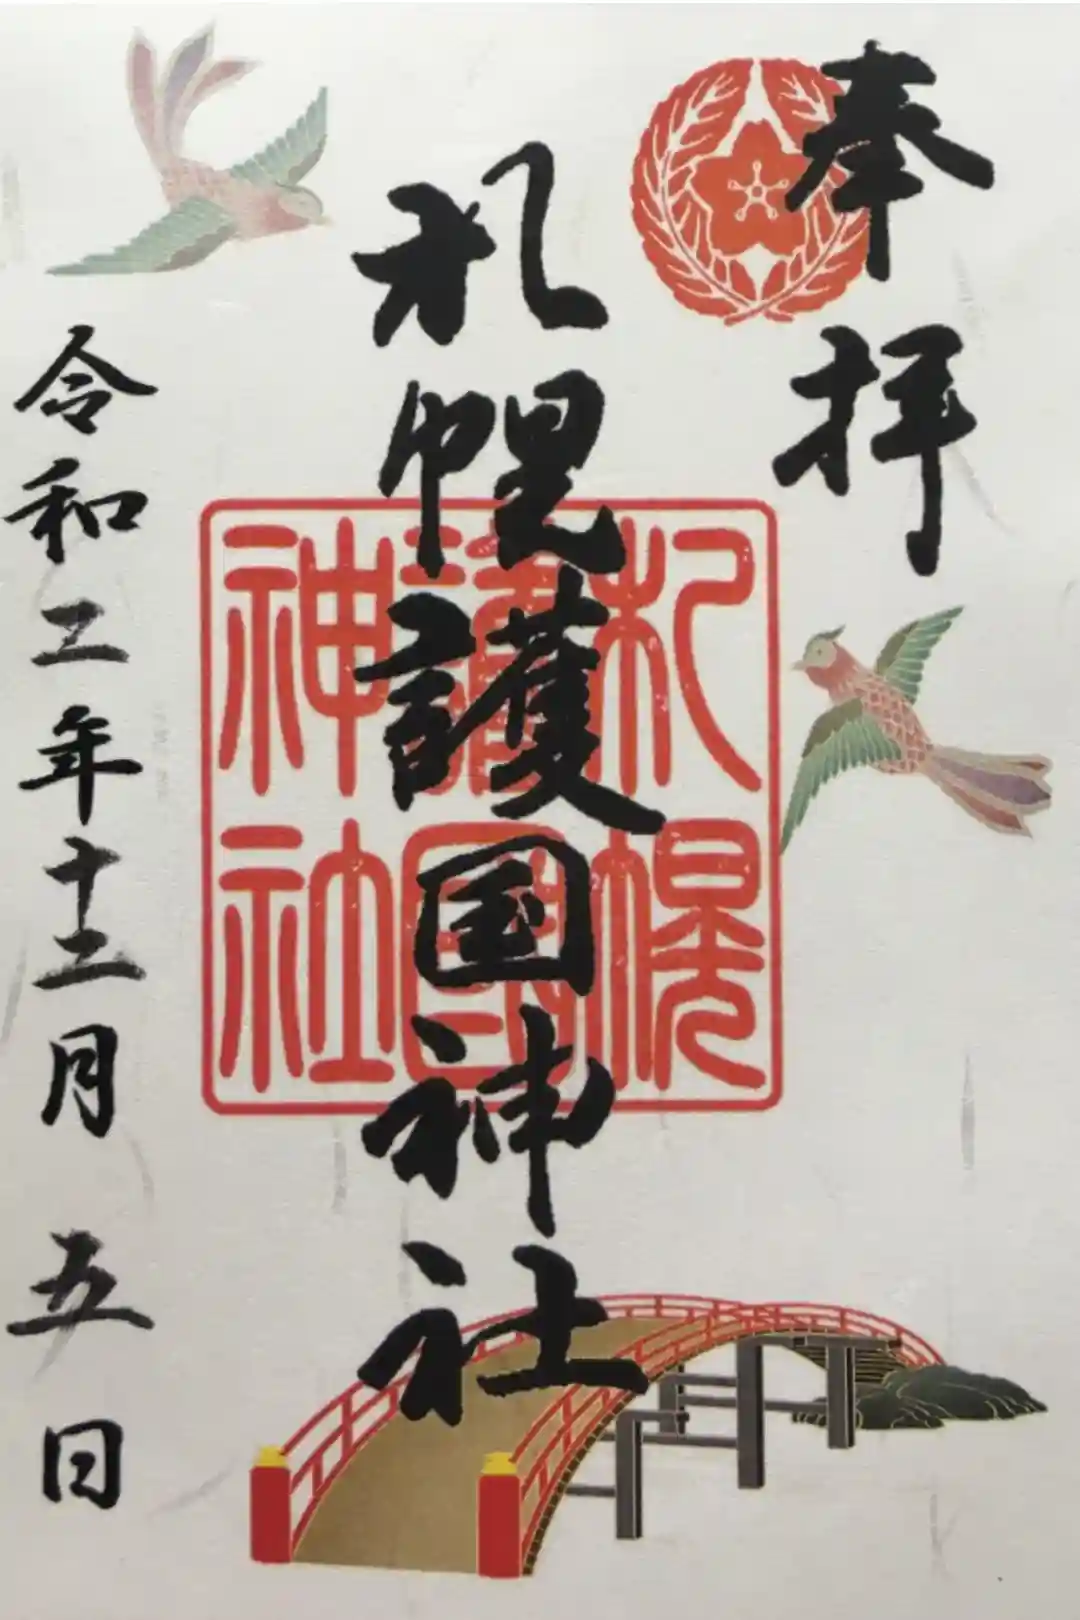 奉拝
札幌護国神社
札幌
護國
神社
令和二年十二月五日